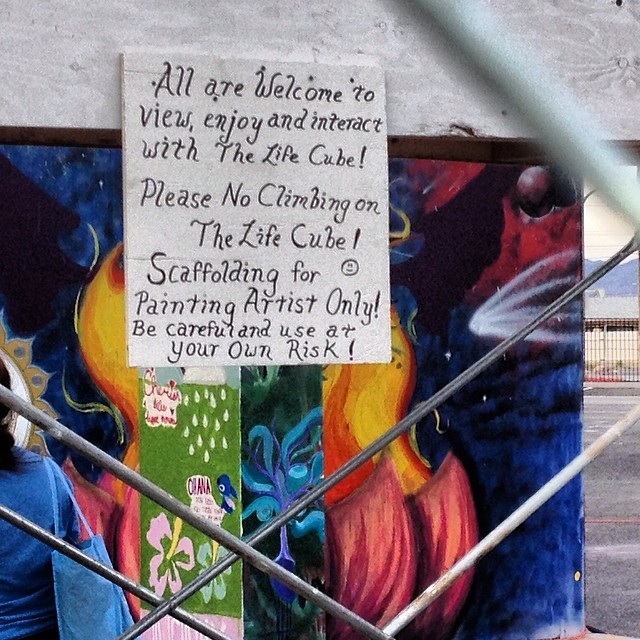 All are Welcome to
view, enjoy and interact
with The Life Cube!
Please No Climbing on
The Life Cube!
Scaffolding for
Painting Artist Only!
Be careful and use at
your Own Risk!
OHANA